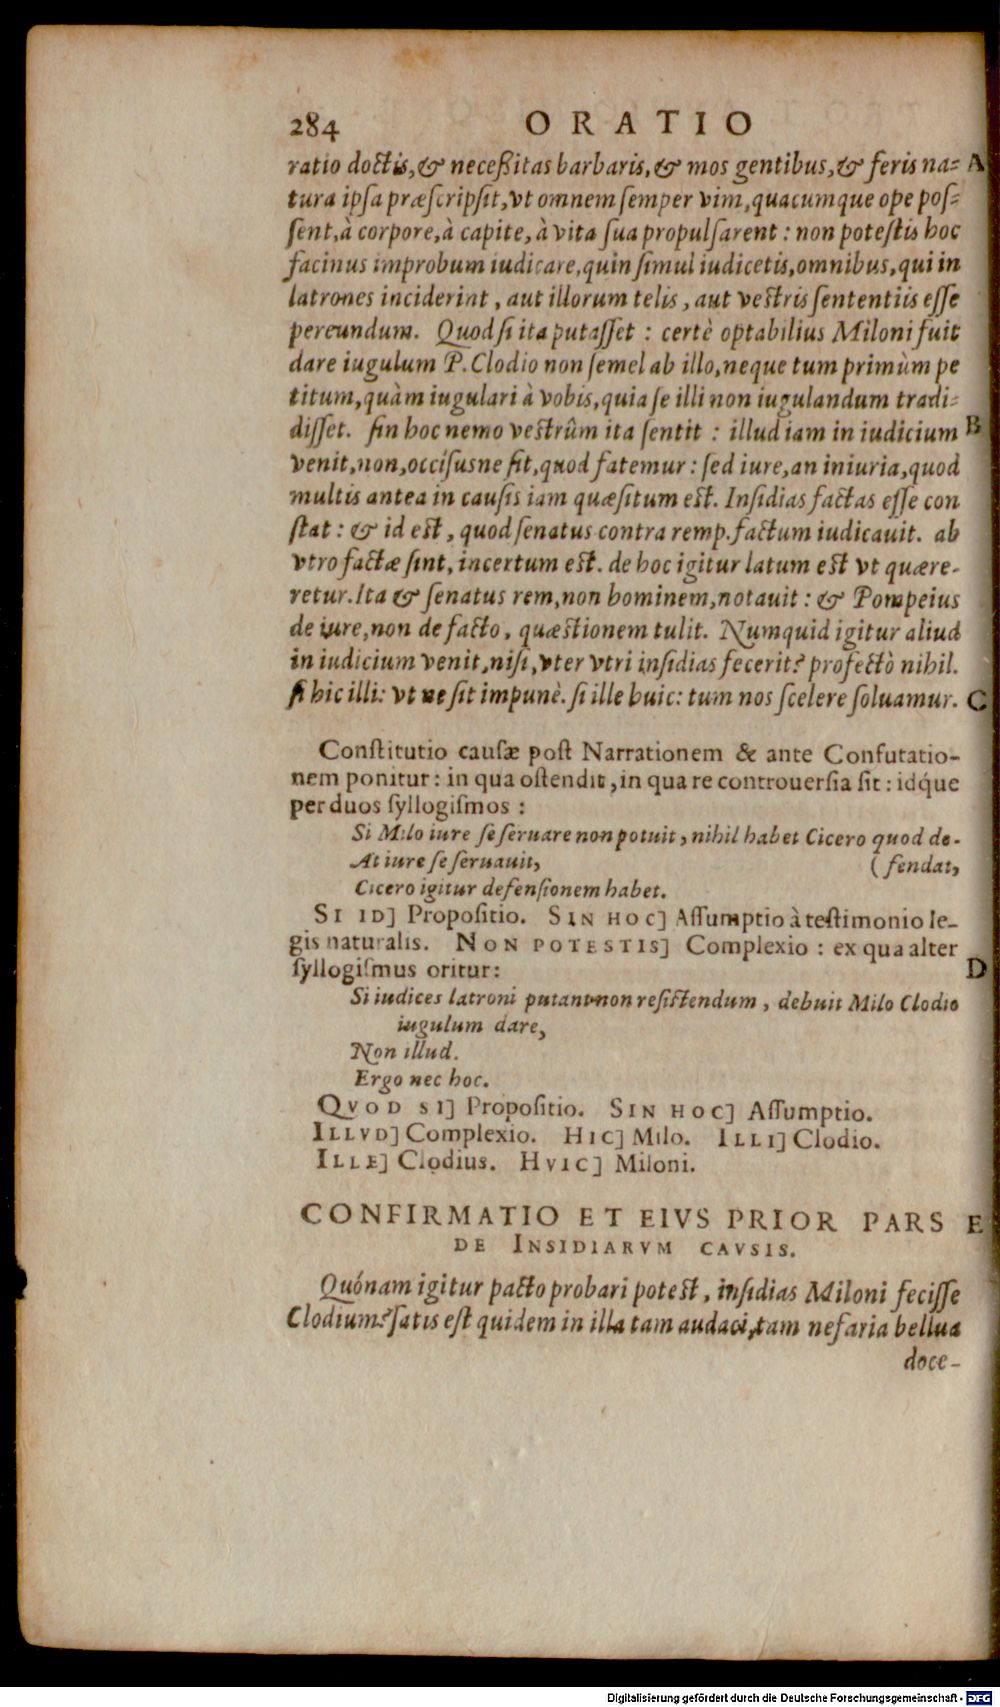 284 ORATIO
ratio doctis, & neceßitas barbaris, & mos gentibus, & feris na= A
tura ipsa præscripsit, vt omnem semper vim, quacumque ope pos=
sent, à corpore, à capite, à vita sua propulsarent : non potestis hoc
facinus improbum iudicare, quin simul iudicetis, omnibus, qui in
latrones inciderint, aut illorum telis, aut vestris sententiis esse
pereundum. Quod si ita putasset : certè optabilius Miloni fuit
dare iugulum P. Clodio non semel ab illo, neque tum primùm pe
titum, quàm iugulari à vobis, quia se illi non iugulandum tradi=
disset. sin hoc nemo vestrûm ita sentit : illud iam in iudicium B
venit, non, occísusne sit, quod fatemur : sed iure, an iniuria, quod
multis antea in causis iam quæsitum est. Insidias factas esse con
stat : & id est, quod senatus contra remp. factum iudicauit. ab
vtro factæ sint, incertum est. de hoc igitur latum est vt quære-
retur. Ita & senatus rem, non hominem, notauit : & Pompeius
de iure, non de facto, quæstionem tulit. Numquid igitur aliud
in iudicium venit, nisi, vter vtri insidias fecerit? profectò nihil.
si hic illi: vt ne sit impunè. si ille huic: tum nos scelere soluamur. C
Constitutio causæ post Narrationem & ante Confutatio-
nem ponitur : in qua ostendit, in qua re controuersia sit : idq́ue
per duos syllogismos :
Si Milo iure se seruare non potuit, nihil habet Cicero quod de-
At iure se seruauit, ( fendat,
Cicero igitur defensionem habet.
SI ID] Propositio. SIN HOC] Assumptio à testimonio le-
gis naturalis. NON POTESTIS] Complexio : ex qua alter
syllogismus oritur: D
Si iudices latroni putant non resistendum, debuit Milo Clodio
iugulum dare,
Non illud.
Ergo nec hoc.
QVOD SI] Propositio. SIN HOC] Assumptio.
ILLVD] Complexio. HIC] Milo. ILLI] Clodio.
ILLE] Clodius. HVIC] Miloni.
CONFIRMATIO ET EIVS PRIOR PARS E
DE INSIDIARVM CAVSIS.
Quónam igitur pacto probari potest, insidias Miloni fecisse
Clodium? satis est quidem in illa tam audaci, tam nefaria bellua
doce-
Digitalisierung gefördert durch die Deutsche Forschungsgemeinschaft - DFG